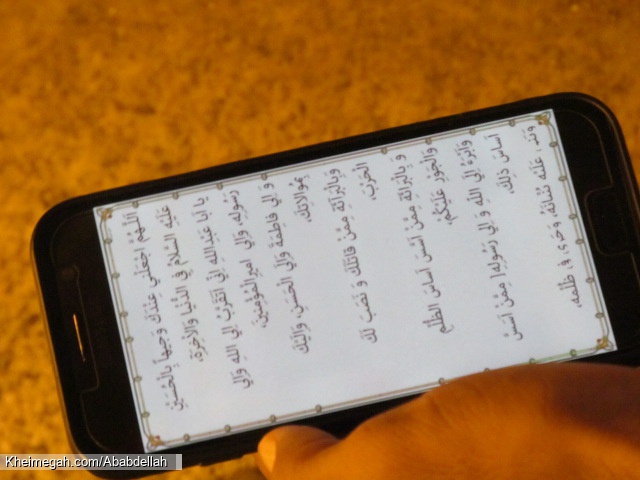 اَللّهُمَّ اجْعَلْني عِنْدَكَ وَجيهاً بِالْحُسَيْنِ
عَلَيْهِ السَّلامُ فِي الدُّنْيا وَالاْخِرَةِ،
يا اَبا عَبْدِاللهِ اِنّي اَتَقَرَّبُ اِلَي اللهِ وَاِلي
رَسُولِهِ، وَاِلي اميرِالْمُؤْمِنينَ،
وَ اِلي فاطِمَةَ وَاِلَي الْحَسَنِ، وَاِلَيْكَ
بِمُوالاتِكَ،
وَبِالْبَرائَةِ مِمَّنْ قاتَلَكَ وَ نَصَبَ لَكَ
الْحَرْبَ،
وَ بِالْبَرائَةِ مِمَّنْ اَسَّسَ اَساسَ الظُّلْمِ
وَالْجَوْرِ عَلَيْكُمْ،
وَاَبْرَءُ اِلَي اللهِ وَ اِلي رَسُولِهِ، مِمَّنْ اَسَّسَ
اَساسَ ذلِكَ،
وَبَني عَلَيْهِ بُنْيانَهُ، وَجَري في ظُلْمِهِ،
Kheimegah.com/Ababdellah